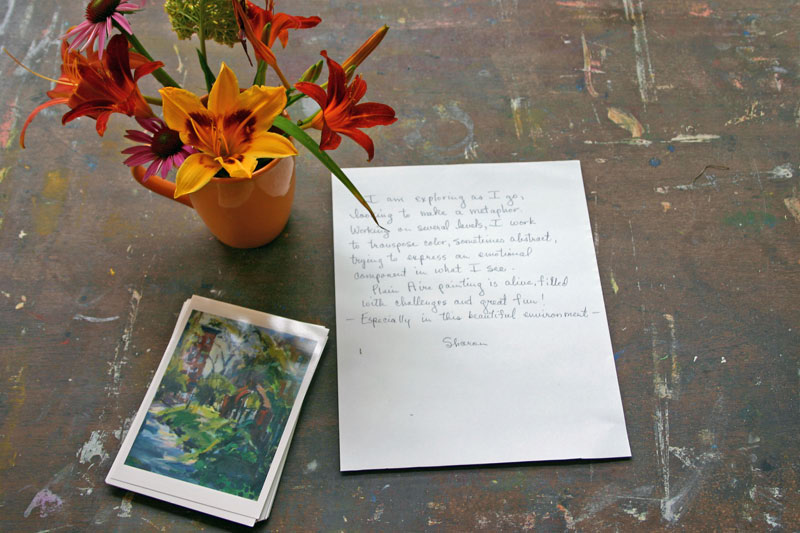 I am exploring as I go,
looking to make a metaphor.
Working on several levels, I work
to transpose color, sometimes abstract,
trying to express an emotional
component in what I see.
Plein Aire painting is alive, filled
with challenges and great fun!
- Especially in this beautiful environment -
Sharon